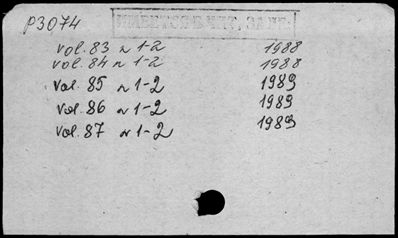 P3074
vol. 83 n 1-2 1988
vol. 84 n 1-2 1988
vol. 85 n 1-2 1989
vol. 86 n 1-2 1989
vol. 87 n 1-2 1989